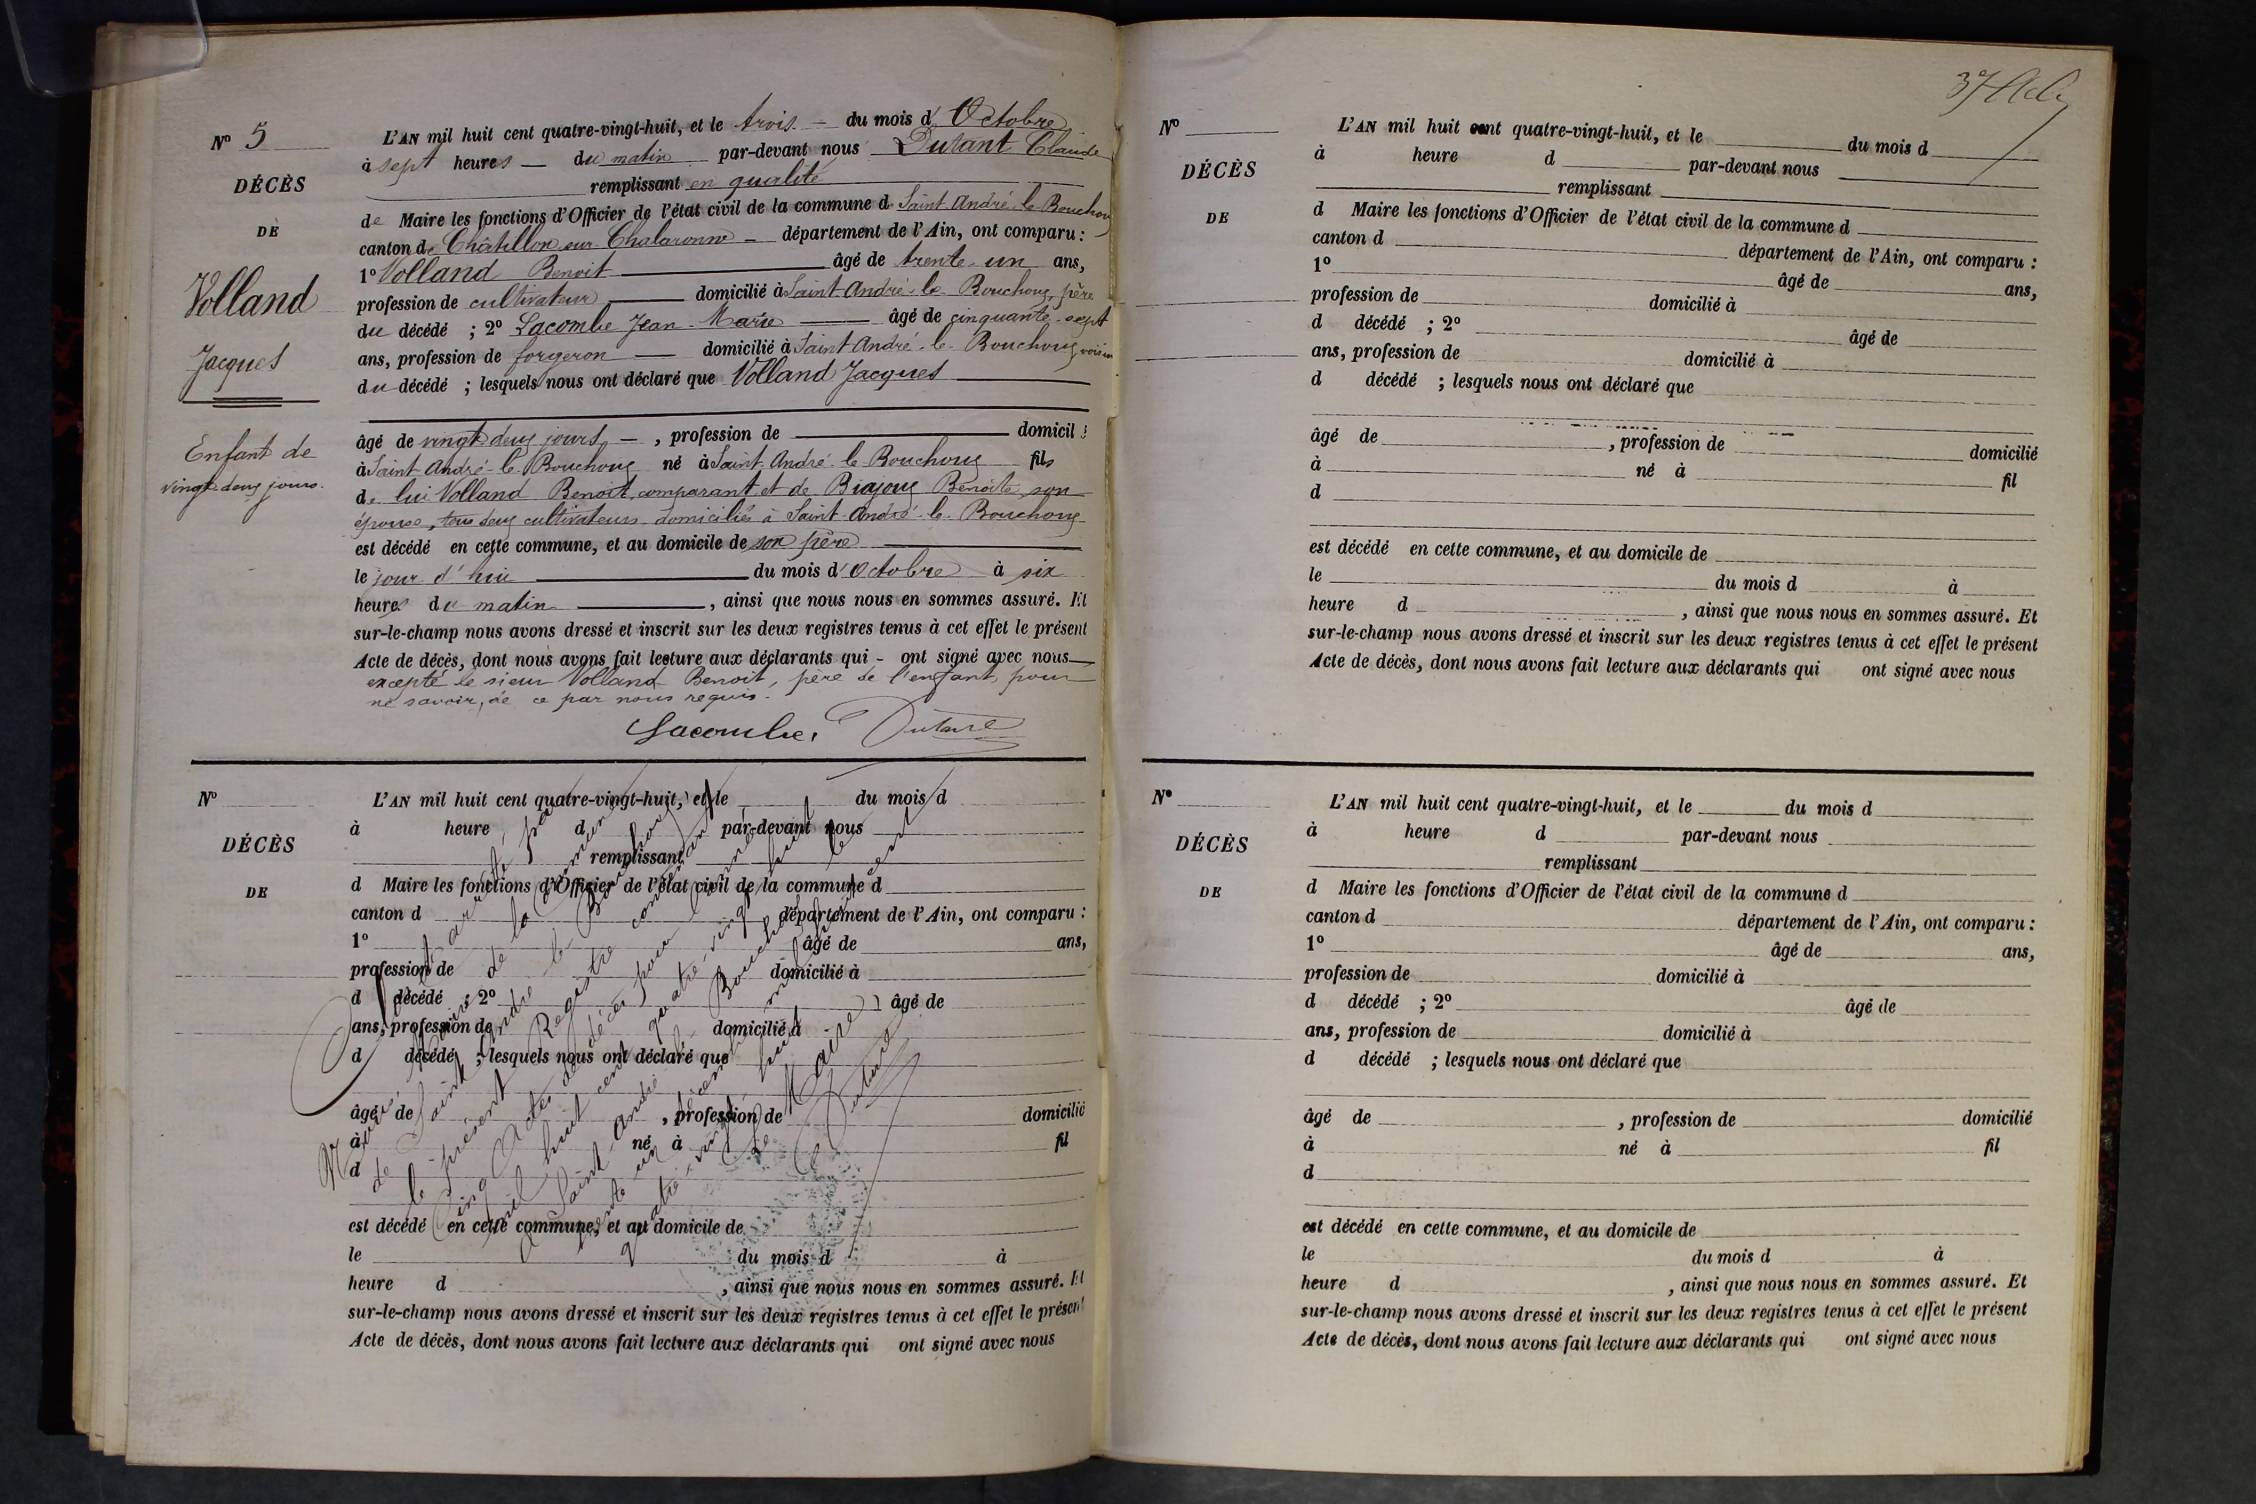 Nº 5
DÉCÈS
DE
Volland
Jacques
Enfant de
vingt-deux jours.
L'AN mil huit cent quatre-vingt-huit, et le trois — du mois d'Octobre
à sept heures — du matin par-devant nous Dutant Claude
remplissant en qualité
de Maire les fonctions d'Officier de l'état civil de la commune de Saint André-le-Bouchoux
canton de Châtillon-sur-Chalaronne — département de l'Ain, ont comparu :
1º Volland Benoit âgé de trente-un ans,
profession de cultivateur domicilié à Saint-André-le-Bouchoux, père
du décédé ; 2º Lacombe Jean-Marie âgé de cinquante-sept
ans, profession de forgeron — domicilié à Saint-André-le-Bouchoux, voisin
du décédé ; lesquels nous ont déclaré que Volland Jacques
âgé de vingt-deux jours — , profession de domicilié
à Saint-André-le-Bouchoux né à Saint-André-le-Bouchoux fils
de lui Volland Benoit, comparant et de Biajoux Benoite, son
épouse, tous deux cultivateurs domiciliés à Saint-André-le-Bouchoux
est décédé en cette commune, et au domicile de son père
le jour d'hui du mois d'Octobre à six
heures du matin , ainsi que nous nous en sommes assuré. Et
sur-le-champ nous avons dressé et inscrit sur les deux registres tenus à cet effet le présent
Acte de décès, dont nous avons fait lecture aux déclarants qui - ont signé avec nous
excepté le sieur Volland Benoit, père de l'enfant, pour
ne savoir, de ce par nous requis.
Lacombe,
Nº
DÉCÈS
DE
L'AN mil huit cent quatre-vingt-huit, et le du mois d
à heure d par-devant nous
remplissant
d Maire les fonctions d'Officier de l'état civil de la commune d
canton d département de l'Ain, ont comparu :
1º âgé de ans,
profession de domicilié à
d décédé ; 2º âgé de
ans, profession de domicilié à
d décédé ; lesquels nous ont déclaré que
âgé de , profession de domicilié
à né à fil
d
est décédé en cette commune, et au domicile de
le du mois d à
heure d , ainsi que nous nous en sommes assuré. Et
sur-le-champ nous avons dressé et inscrit sur les deux registres tenus à cet effet le présent
Acte de décès, dont nous avons fait lecture aux déclarants qui ont signé avec nous
arrêté par
de la Commune
de Saint André-le-Bouchoux
le présent Registre contenant
Cinq Actes de décès pour l'année
mil huit cent quatre-vingt-huit
A Saint-André-le-Bouchoux le
trente un décembre mil huit cent
quatre-vingt-huit
Le Maire
Nº
DÉCÈS
DE
L'AN mil huit cent quatre-vingt-huit, et le du mois d
à heure d par-devant nous
remplissant
d Maire les fonctions d'Officier de l'état civil de la commune d
canton d département de l'Ain, ont comparu :
1º âgé de ans,
profession de domicilié à
d décédé ; 2º âgé de
ans, profession de domicilié à
d décédé ; lesquels nous ont déclaré que
âgé de , profession de domicilié
à né à fil
d
est décédé en cette commune, et au domicile de
le du mois d à
heure d , ainsi que nous nous en sommes assuré. Et
sur-le-champ nous avons dressé et inscrit sur les deux registres tenus à cet effet le présent
Acte de décès, dont nous avons fait lecture aux déclarants qui ont signé avec nous
Nº
DÉCÈS
DE
L'AN mil huit cent quatre-vingt-huit, et le du mois d
à heure d par-devant nous
remplissant
d Maire les fonctions d'Officier de l'état civil de la commune d
canton d département de l'Ain, ont comparu :
1º âgé de ans,
profession de domicilié à
d décédé ; 2º âgé de
ans, profession de domicilié à
d décédé ; lesquels nous ont déclaré que
âgé de , profession de domicilié
à né à fil
d
est décédé en cette commune, et au domicile de
le du mois d à
heure d , ainsi que nous nous en sommes assuré. Et
sur-le-champ nous avons dressé et inscrit sur les deux registres tenus à cet effet le présent
Acte de décès, dont nous avons fait lecture aux déclarants qui ont signé avec nous